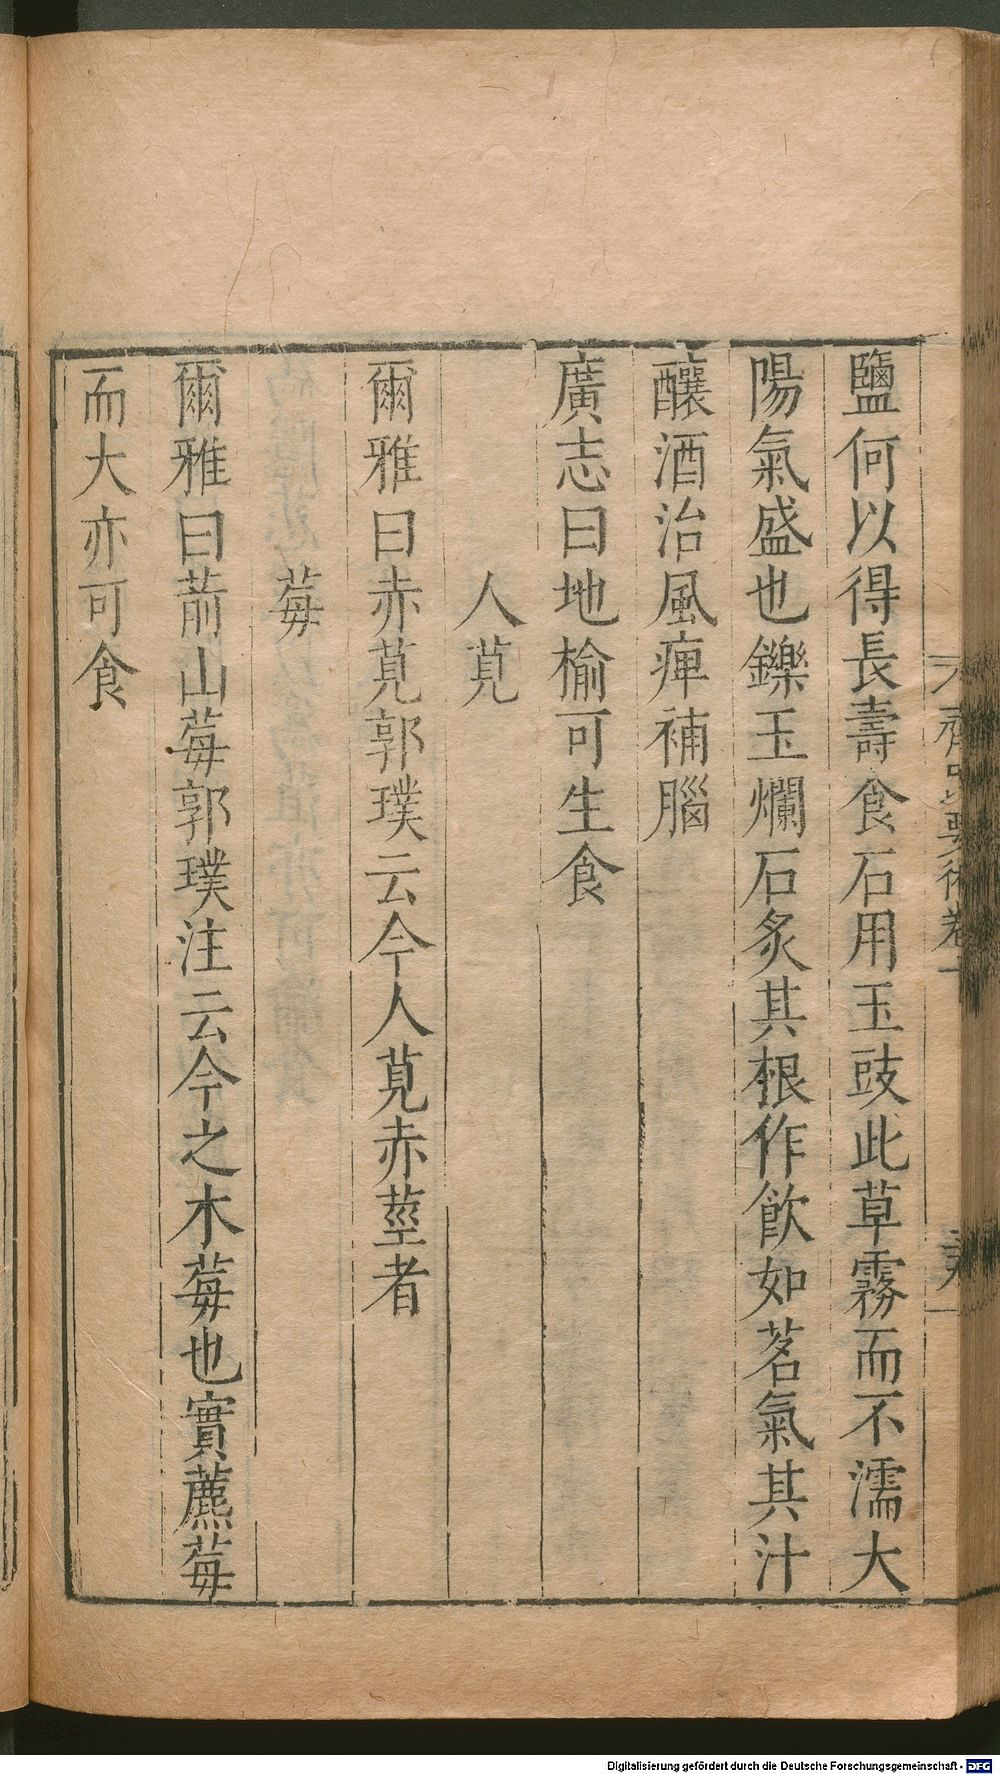 鹽何以得長壽食石用玉豉此草霧而不濡大
陽氣盛也鑠玉爛石炙其根作飲如茗氣其汁
釀酒治風痺補腦
廣志曰地榆可生食
人莧
爾雅曰赤莧郭璞云今人莧赤莖者
莓
爾雅曰葥山莓郭璞注云今之木莓也實藨莓
而大亦可食
Digitalisierung gefördert durch die Deutsche Forschungsgemeinschaft - DFG